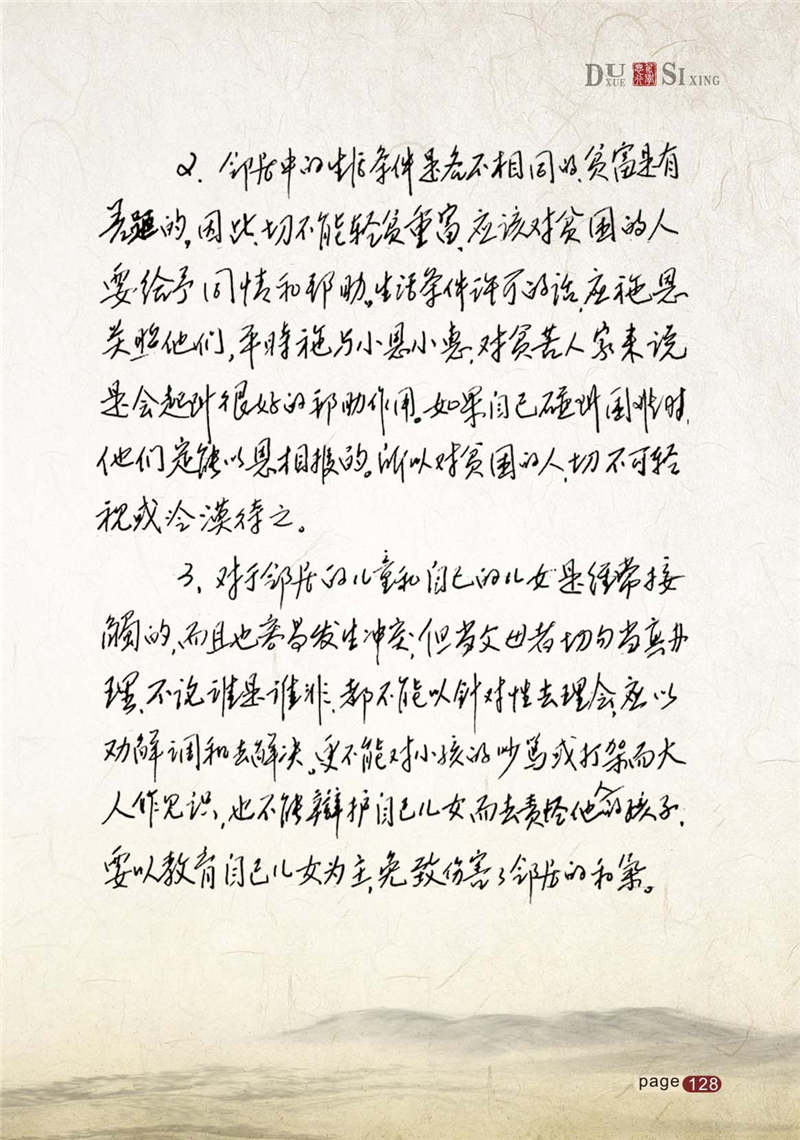 DU XUE SI XING
2、邻居中的生活条件是各不相同的,贫富是有
差距的。因此,切不能轻贫重富,应该对贫困的人
要给予同情和帮助。生活条件许可的话,应施恩
关照他们,平时施与小恩小惠,对贫苦人家来说
是会起到很好的帮助作用。如果自己碰到困难时,
他们定能以恩相报的。所以对贫困的人,切不可轻
视或冷漠待之。
3、对于邻居的儿童和自己的儿女是经常接
觸的,而且也容易发生冲突,但当父母者切勿当真办
理,不说谁是谁非,都不能以针对性去理会,应以
劝解调和去解决。更不能对小孩的吵骂或打架而大
人作见识,也不能辩护自己儿女而去责怪他人的孩子,
要以教育自己儿女为主,免致伤害了邻居的和气。
page 128